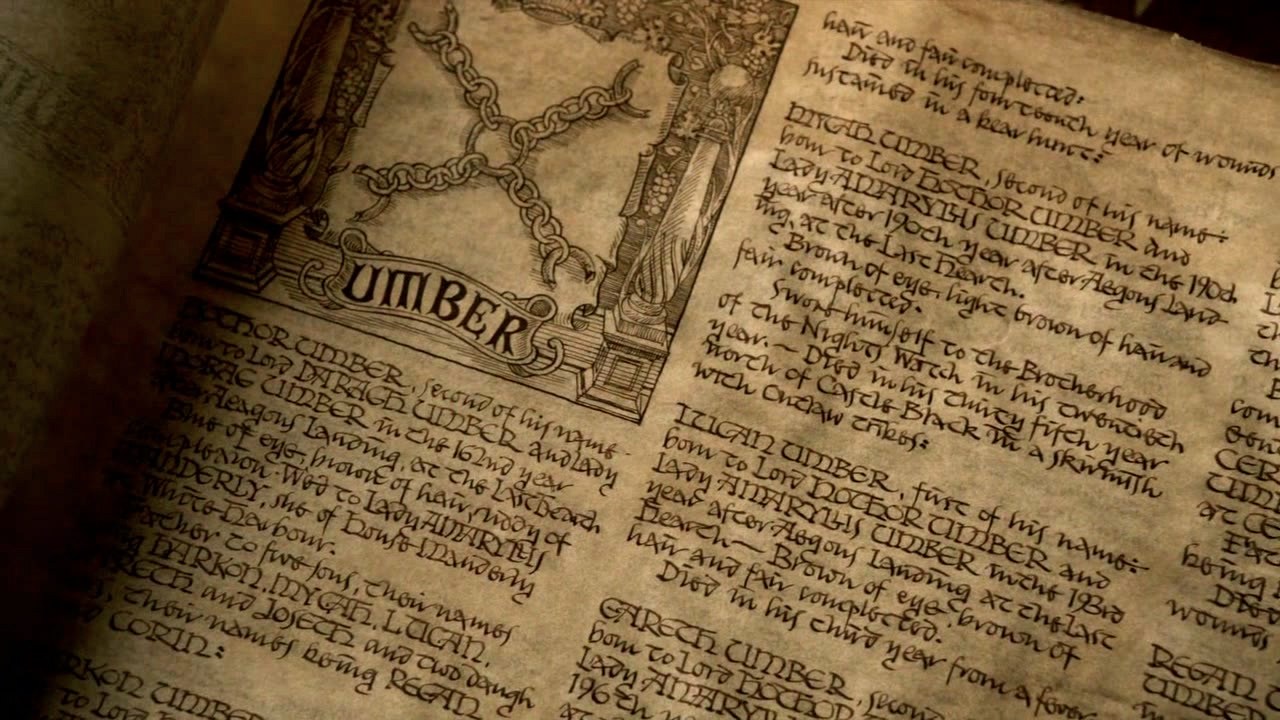 UMBER
HOTHOR UMBER, second of his name.
born to Lord DARAGH UMBER and Lady
UMBER in the 162nd year
after Aegons Landing, at the Last Hearth
Blue of eye, brown of hair, ruddy of
complexion. Wed to Lady AMARYLLIS
MANDERLY, she of House Manderly
at White Harbour.
Father to five sons, their names
being HARKON, MYGAH, LUCAN,
GARETH and JOSETH and two daugh
their names being REGAN
and CORIN:
HARKON UMBER
to Lord
hair and fair complected:
Died in his fourteenth year of wounds
sustained in a bear hunt:
MYGAH UMBER, second of his name:
born to Lord HOTHOR UMBER and
Lady AMARYLLIS UMBER in the 190th
year after 190th year after Aegons Land
ing, at the Last Hearth.
Brown of eye, light brown of hair and
fair complected.
Swore himself to the Brotherhood
of the Nights Watch in his twentieth
year. – Died in his thirty fifth year
north of Castle Black in a skirmish
with outlaw tribes:
LUCAN UMBER, first of his name:
born to Lord HOTHOR UMBER and
Lady AMARYLLIS UMBER in the 193rd
year after Aegons Landing at the Last
Hearth – Brown of eye, brown of
hair and fair complected.
Died in his third year from a fever
GARETH UMBER, second
born to Lord HOTHOR
Lady AMARYLLIS
196th year
at
CER
UMBER
at CE
being
Died
wounds
REGAN
UMBER